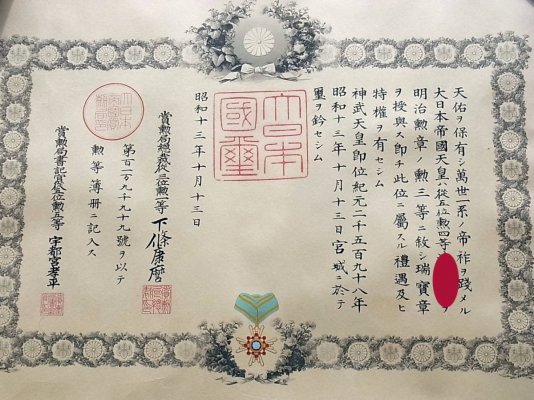 天佑ヲ保有シ萬世一系ノ帝祚ヲ踐メル
大日本帝國天皇ハ從五位勲四等
ヲ
明治勲章ノ勲三等ニ敘シ瑞寶章
ヲ授與ス即チ此位ニ屬スル禮遇及ヒ
特權ヲ有セシム
神武天皇即位紀元二千五百九十八年
昭和十三年十月十三日宮城ニ於テ
璽ヲ鈐セシム
大日本國璽
昭和十三年十月十三日
賞勲局總裁從三位勲一等下條康麿
第百二万九千九十九號ヲ以テ
勲等簿册ニ記入ス
賞勲局書記官從五位勲五等宇都宮孝平